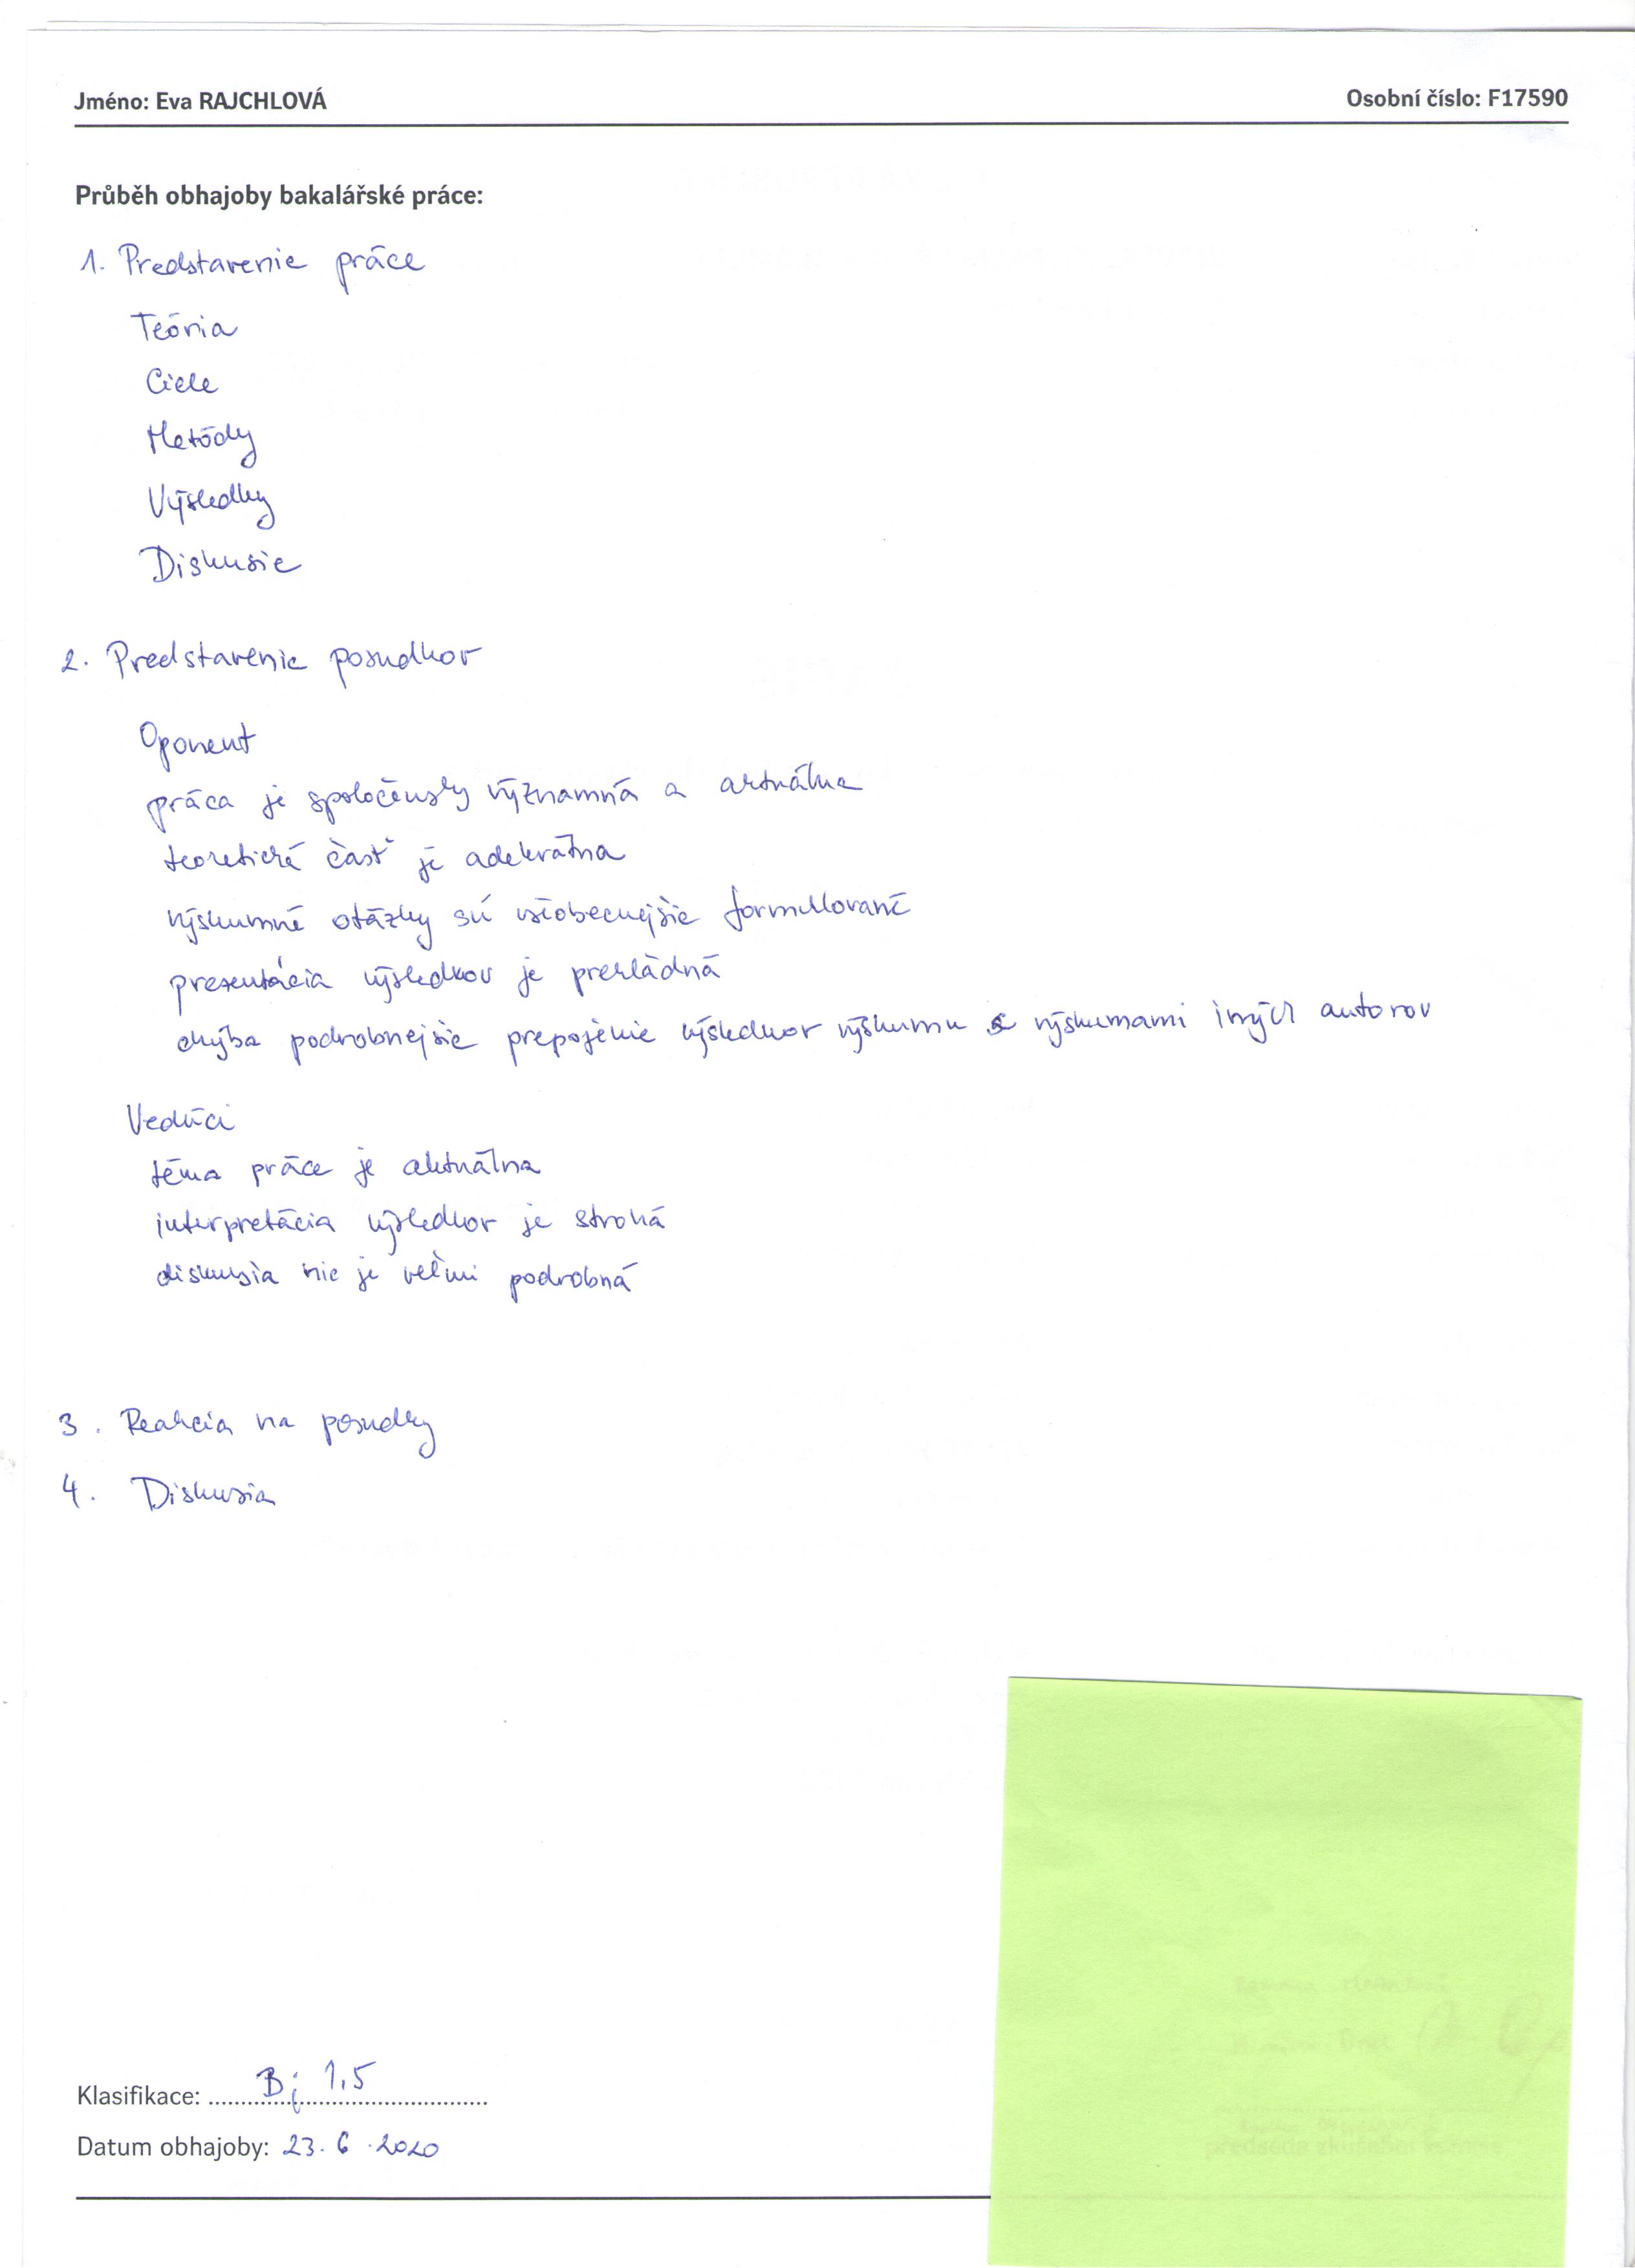 Jméno: Eva RAJCHLOVÁ Osobní číslo: F17590
Průběh obhajoby bakalářské práce:
1. Predstavenie práce
Teória
Ciele
Metódy
Výsledky
Diskusie
2. Predstavenie posudkov
Oponent
práca je spoločensky významná a aktuálna
teoretická časť je adekvátna
výskumné otázky sú všobecnejšie formulované
prezentácia výsledkov je prekládná
chýba podrobnejšie prepojenie výsledkov výskumu s výskumami iných autorov
Vedúci
téma práce je aktuálna
interpretácia výsledkov je strohá
diskusia nie je veľmi podrobná
3. Reakcia na posudky
4. Diskusia
Klasifikace: B; 1,5
Datum obhajoby: 23. 6. 2020
předseda zkušební komise